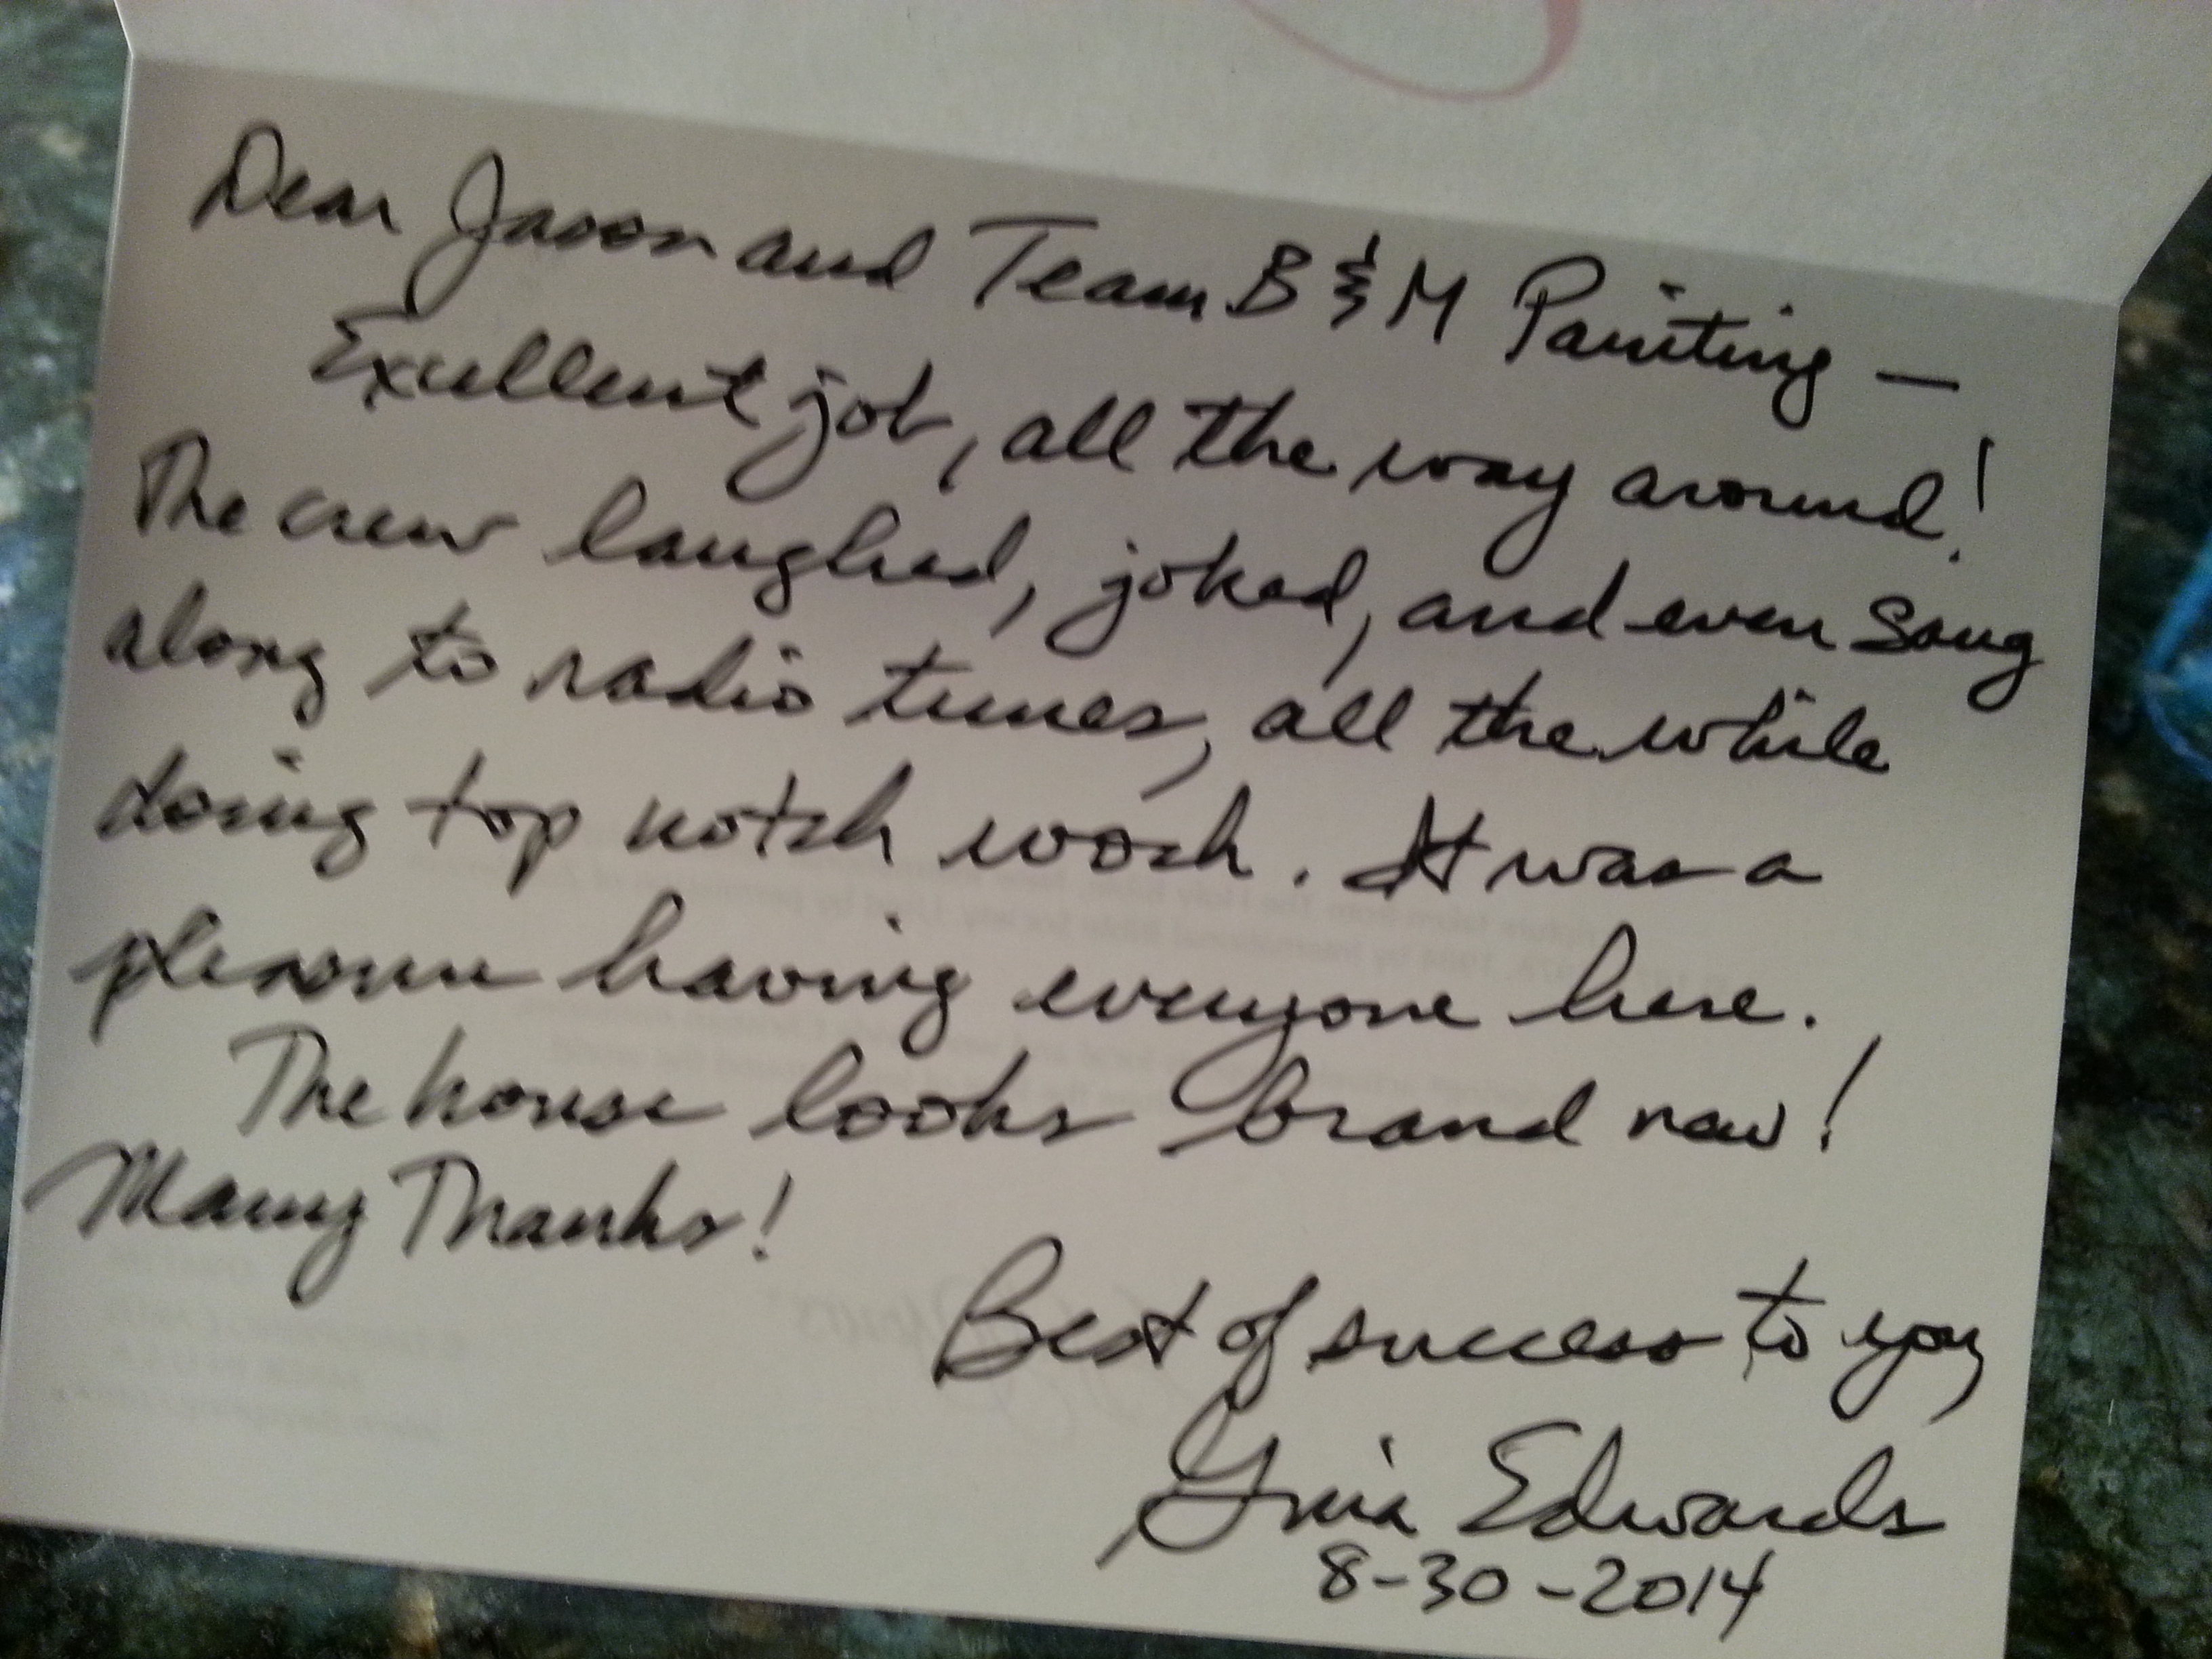 Dear Jason and Team B & M Painting —
Excellent job, all the way around!
The crew laughed, joked, and even sang
along to radio tunes, all the while
doing top notch work. It was a
pleasure having everyone here.
The house looks brand new!
Many Thanks!
Best of success to you,
Gina Edwards
8-30-2014